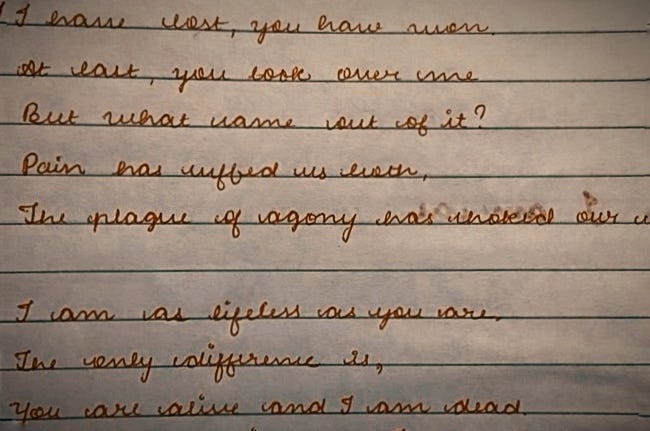 I have lost, you have won.
At last, you took over me
But what came out of it?
Pain has ripped us both,
The plague of agony has choked our
I am as lifeless as you are,
The only difference is,
You are alive and I am dead.